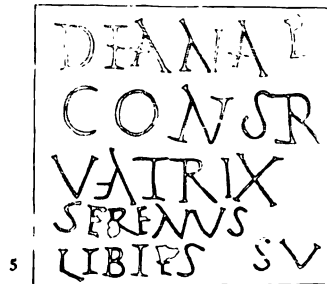 DIANAI
CONSR
VATRIX
SERENVS
5 LIBIES SV